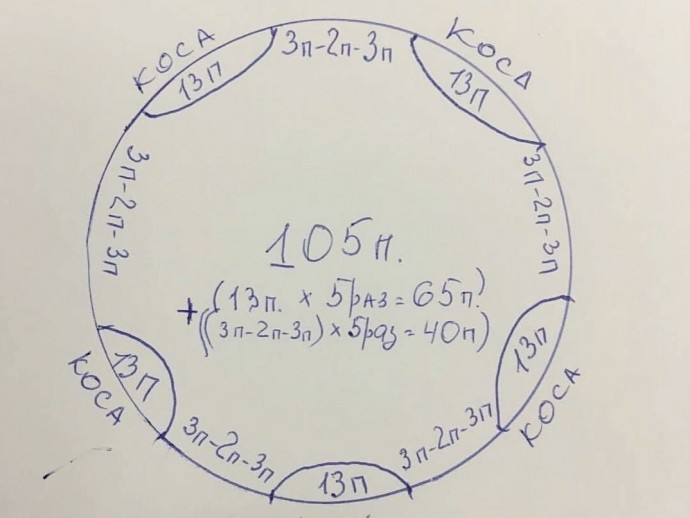 КОСА
13п
3п-2п-3п
КОСА
13п
3п-2п-3п
3п-2п-3п
105п.
(13п. х 5раз = 65п.)
+ ((3п-2п-3п) х 5раз = 40п)
13п
КОСА
13п
КОСА
3п-2п-3п
3п-2п-3п
13п